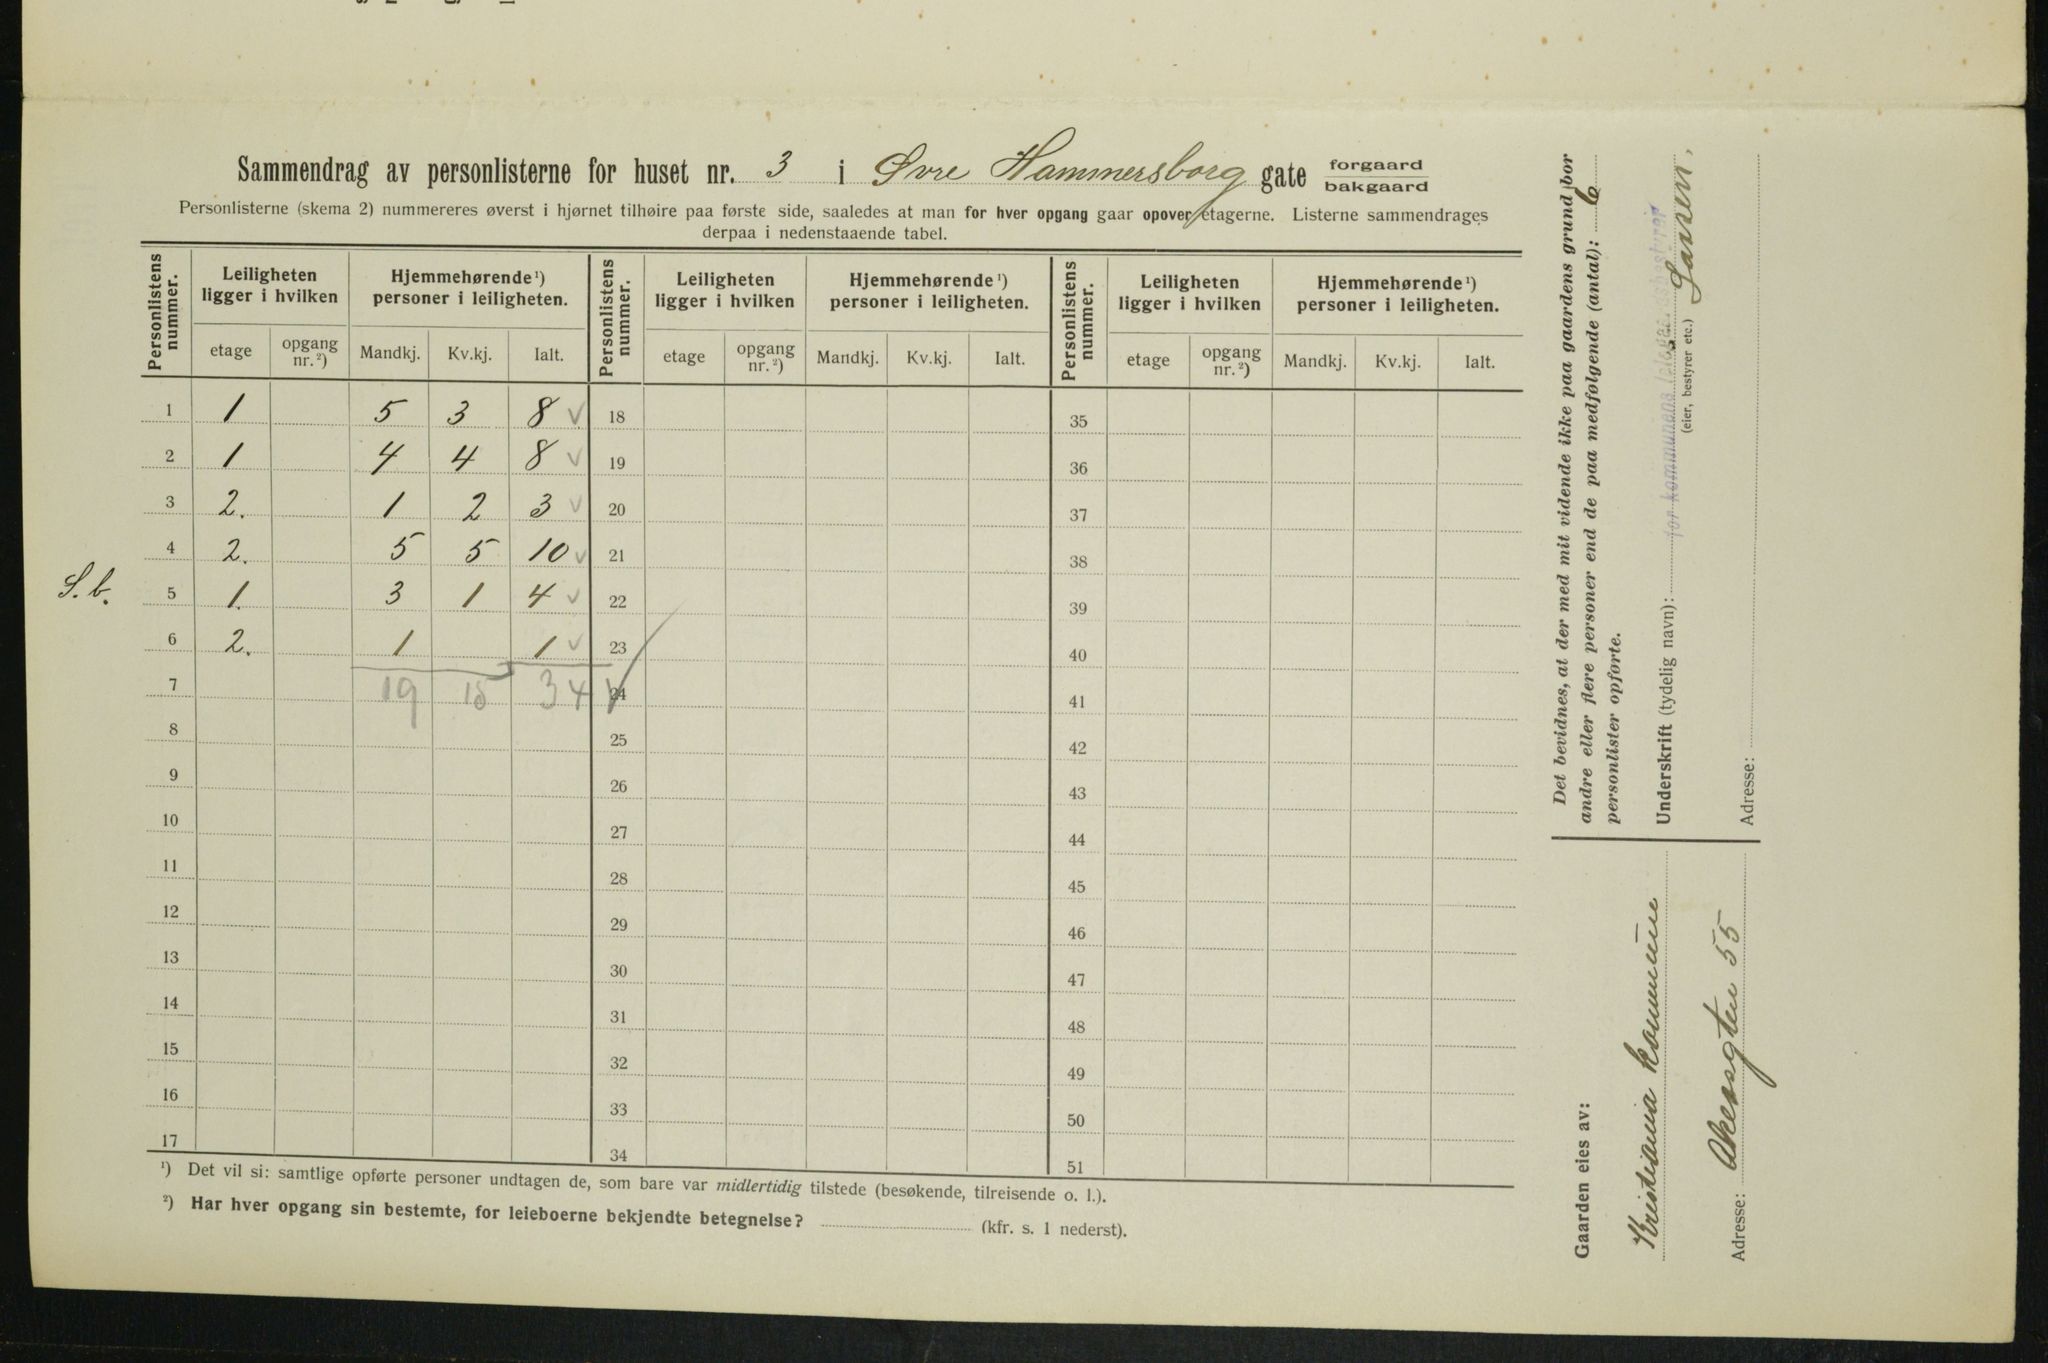 Sammendrag av personlisterne for huset nr. 3 i Øvre Hammersborg gate forgaard bakgaard
Personlisterne (skema 2) nummereres øverst i hjørnet tilhøire paa første side, saaledes at man for hver opgang gaar opover etagerne. Listerne sammendrages
derpaa i nedenstaaende tabel.
Personlistens nummer. Leiligheten ligger i hvilken Hjemmehørende ¹) personer i leiligheten. Personlistens nummer. Leiligheten ligger i hvilken Hjemmehørende ¹) personer i leiligheten. Personlistens nummer. Leiligheten ligger i hvilken Hjemmehørende ¹) personer i leiligheten.
etage opgang nr. ²) Mandkj. Kv.kj. Ialt. etage opgang nr. ²) Mandkj. Kv.kj. Ialt. etage opgang nr. ²) Mandkj. Kv.kj. Ialt.
1 1 5 3 8 √ 18 35
2 1 4 4 8 √ 19 36
3 2. 1 2 3 √ 20 37
4 2. 5 5 10 √ 21 38
S. b. 5 1. 3 1 4 √ 22 39
6 2. 1 1 √ 23 40
7 19 15 34 √ 24 41
8 25 42
9 26 43
10 27 44
11 28 45
12 29 46
13 30 47
14 31 48
15 32 49
16 33 50
17 34 51
¹) Det vil si: samtlige opførte personer undtagen de, som bare var midlertidig tilstede (besøkende, tilreisende o. l.).
²) Har hver opgang sin bestemte, for leieboerne bekjendte betegnelse? (kfr. s. 1 nederst).
Det bevidnes, at der med mit vidende ikke paa gaardens grund bor
andre eller flere personer end de paa medfølgende (antal): 6
personlister opførte.
Underskrift (tydelig navn): for kommunens Larsen.
(eier, bestyrer etc.)
Adresse:
Gaarden eies av:
Kristiania kommune
Adresse: Akersgten 55